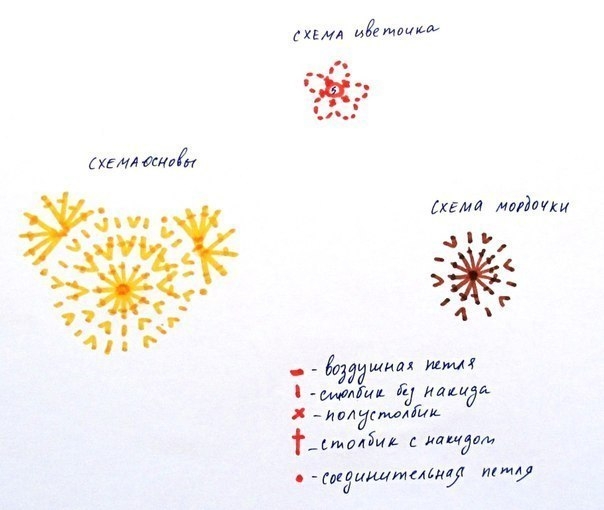 схема цветочка
5
схема основы
схема мордочки
- воздушная петля
- столбик без накида
- полустолбик
- столбик с накидом
- соединительная петля